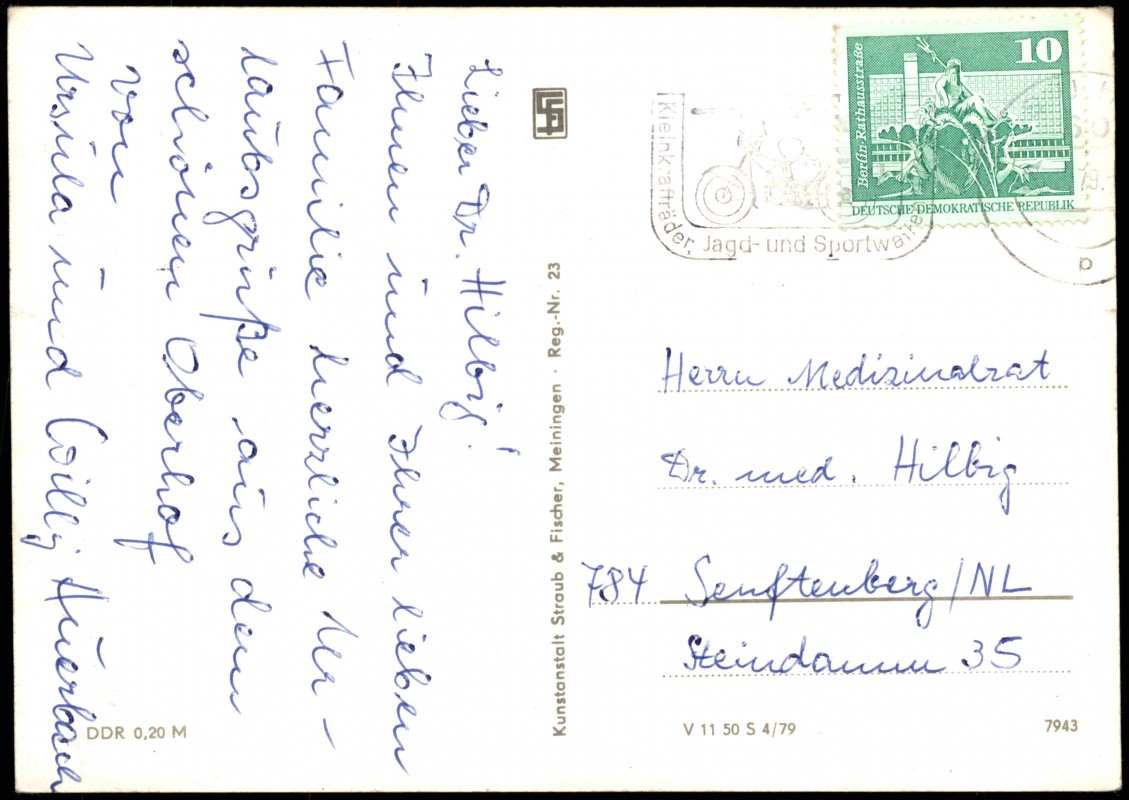 Lieber Dr. Hilbig!
Ihnen und Ihrer lieben
Familie herzliche Ur-
laubsgrüße aus dem
schönen Oberhof
von
Ursula und Willy Auerbach
DDR 0,20 M
Kunstanstalt Straub & Fischer, Meiningen · Reg.-Nr. 23
Kleinkrafträder, Jagd- und Sportwaffen
10
Berlin-Rathausstraße
DEUTSCHE DEMOKRATISCHE REPUBLIK
b
Herrn Medizinalrat
Dr. med. Hilbig
784 Senftenberg/NL
Steindamm 35
V 11 50 S 4/79
7943